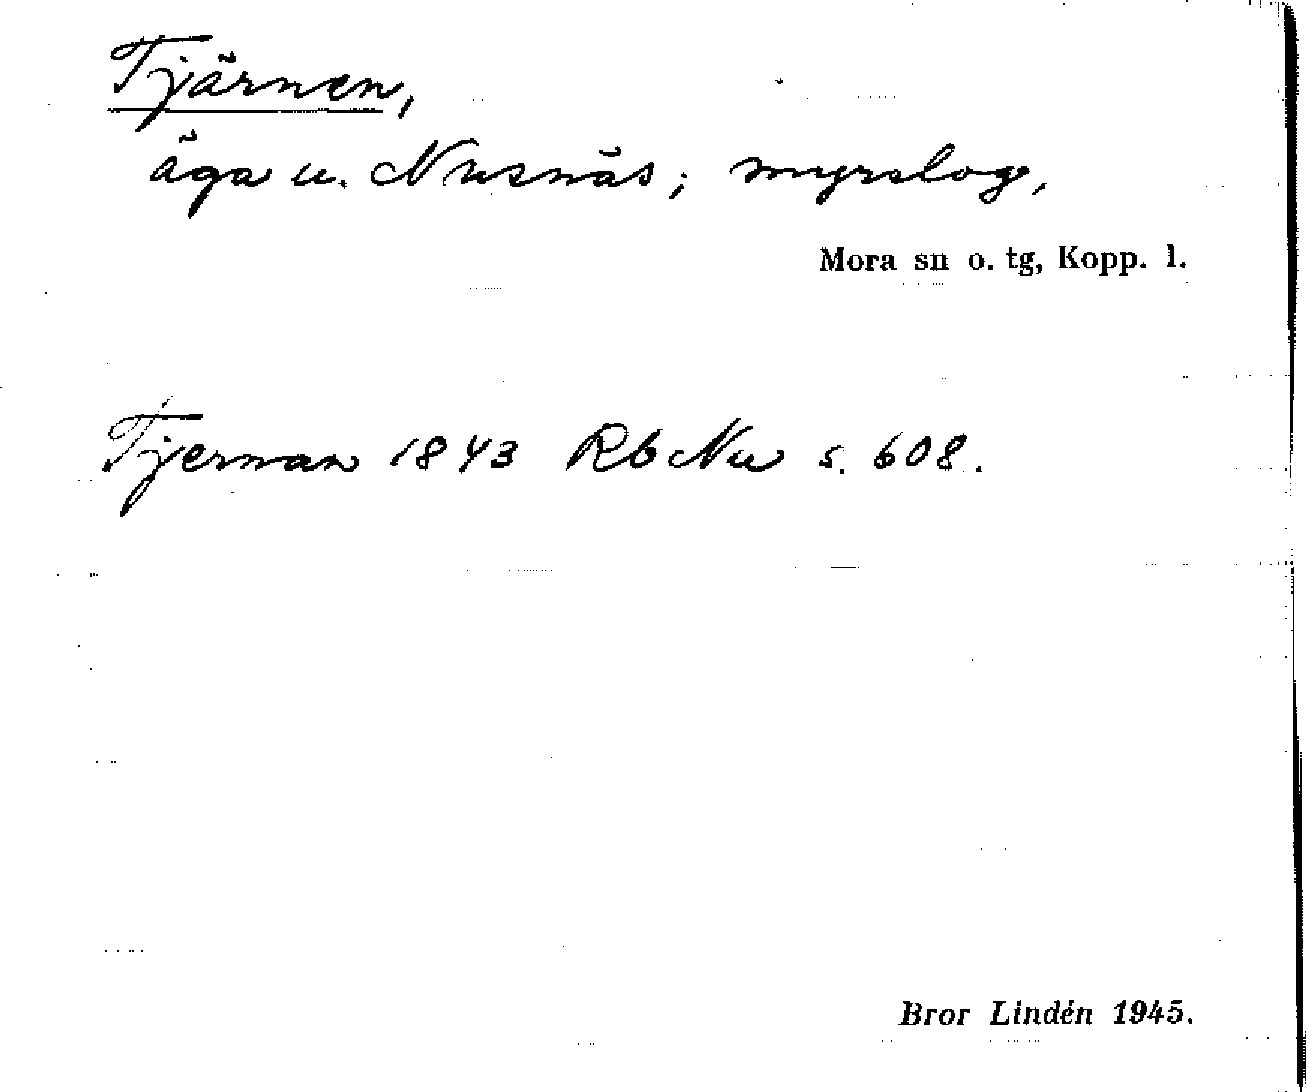 Tjärnen,
äga u. Nusnäs; myrslog,
Mora sn o. tg, Kopp. l.
Tjernan 1843 Rb Nu s. 608.
Bror Lindén 1945.